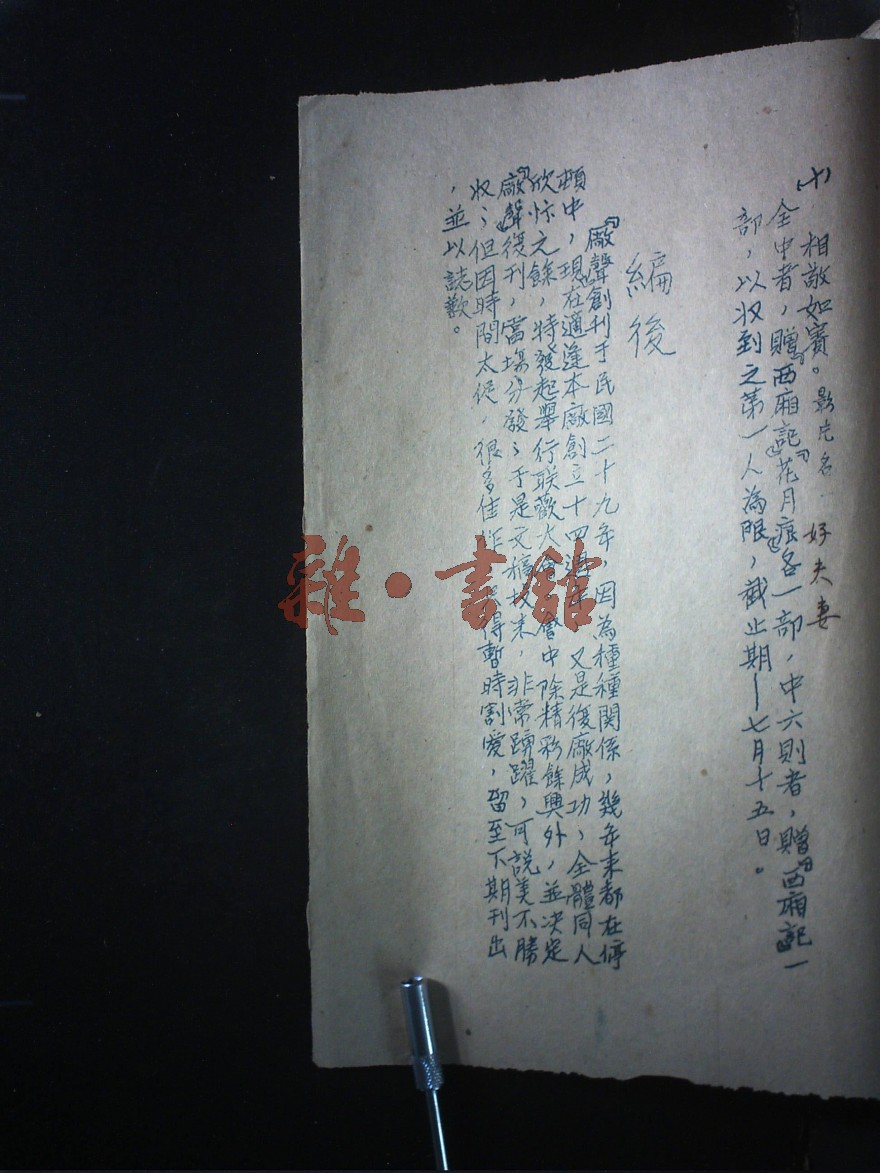 (十) 相敬如賓。影片名一 好夫妻
全中者，贈『西廂記』『花月痕』各一部，中六則者，贈『西廂記』一
部，以收到之第一人為限，截止期—七月十五日。
編後
『廠聲』創刊于民國二十九年，因為種種關係，幾年来都在停
頓中，現在適逢本廠創立十四週年，又是復廠成功，全體同人
欣忭之餘，特發起舉行联歡大會，會中除精彩餘興外，並決定
『廠聲』復刊，當場分發；于是文稿拔来，非常踴躍，可說美不勝
收；但因時間太促，很多佳作 得暫時割愛，留至下期刊出
，並以誌歉。
雜·書館